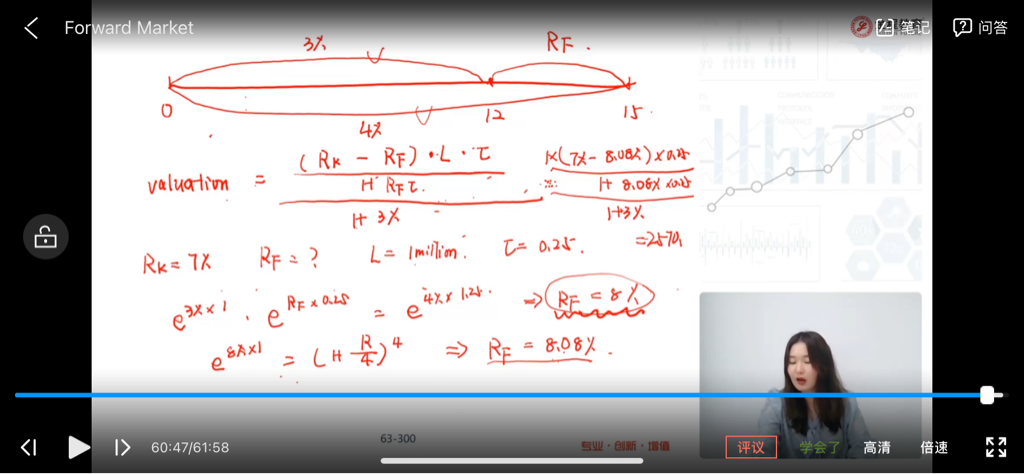 Forward Market
笔记
问答
3% RF.
0 12 15.
4%
valuation = (RK - RF)·L·τ / 1+ RFτ. / 1+ 3%
1×(7% - 8.08%)×0.25 / 1+ 8.08%×0.25 / 1+3%
=2570,
RK = 7% RF = ? L = 1 million. τ = 0.25.
e^3%×1 · e^RF×0.25 = e^4%×1.25. ⇒ RF = 8%
e^8%×1 = (1+ R/4)^4 ⇒ RF = 8.08%.
63-300
专业·创新·增值
60:47/61:58
评议
学会了
高清
倍速